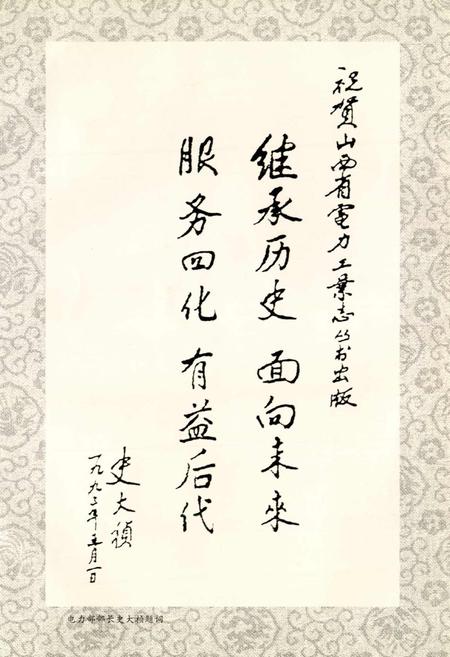 祝贺山西省電力工業志丛书出版
继承历史 面向未來
服务四化 有益后代
史大祯
一九九三年五月一日
电力部部长史大桢题词